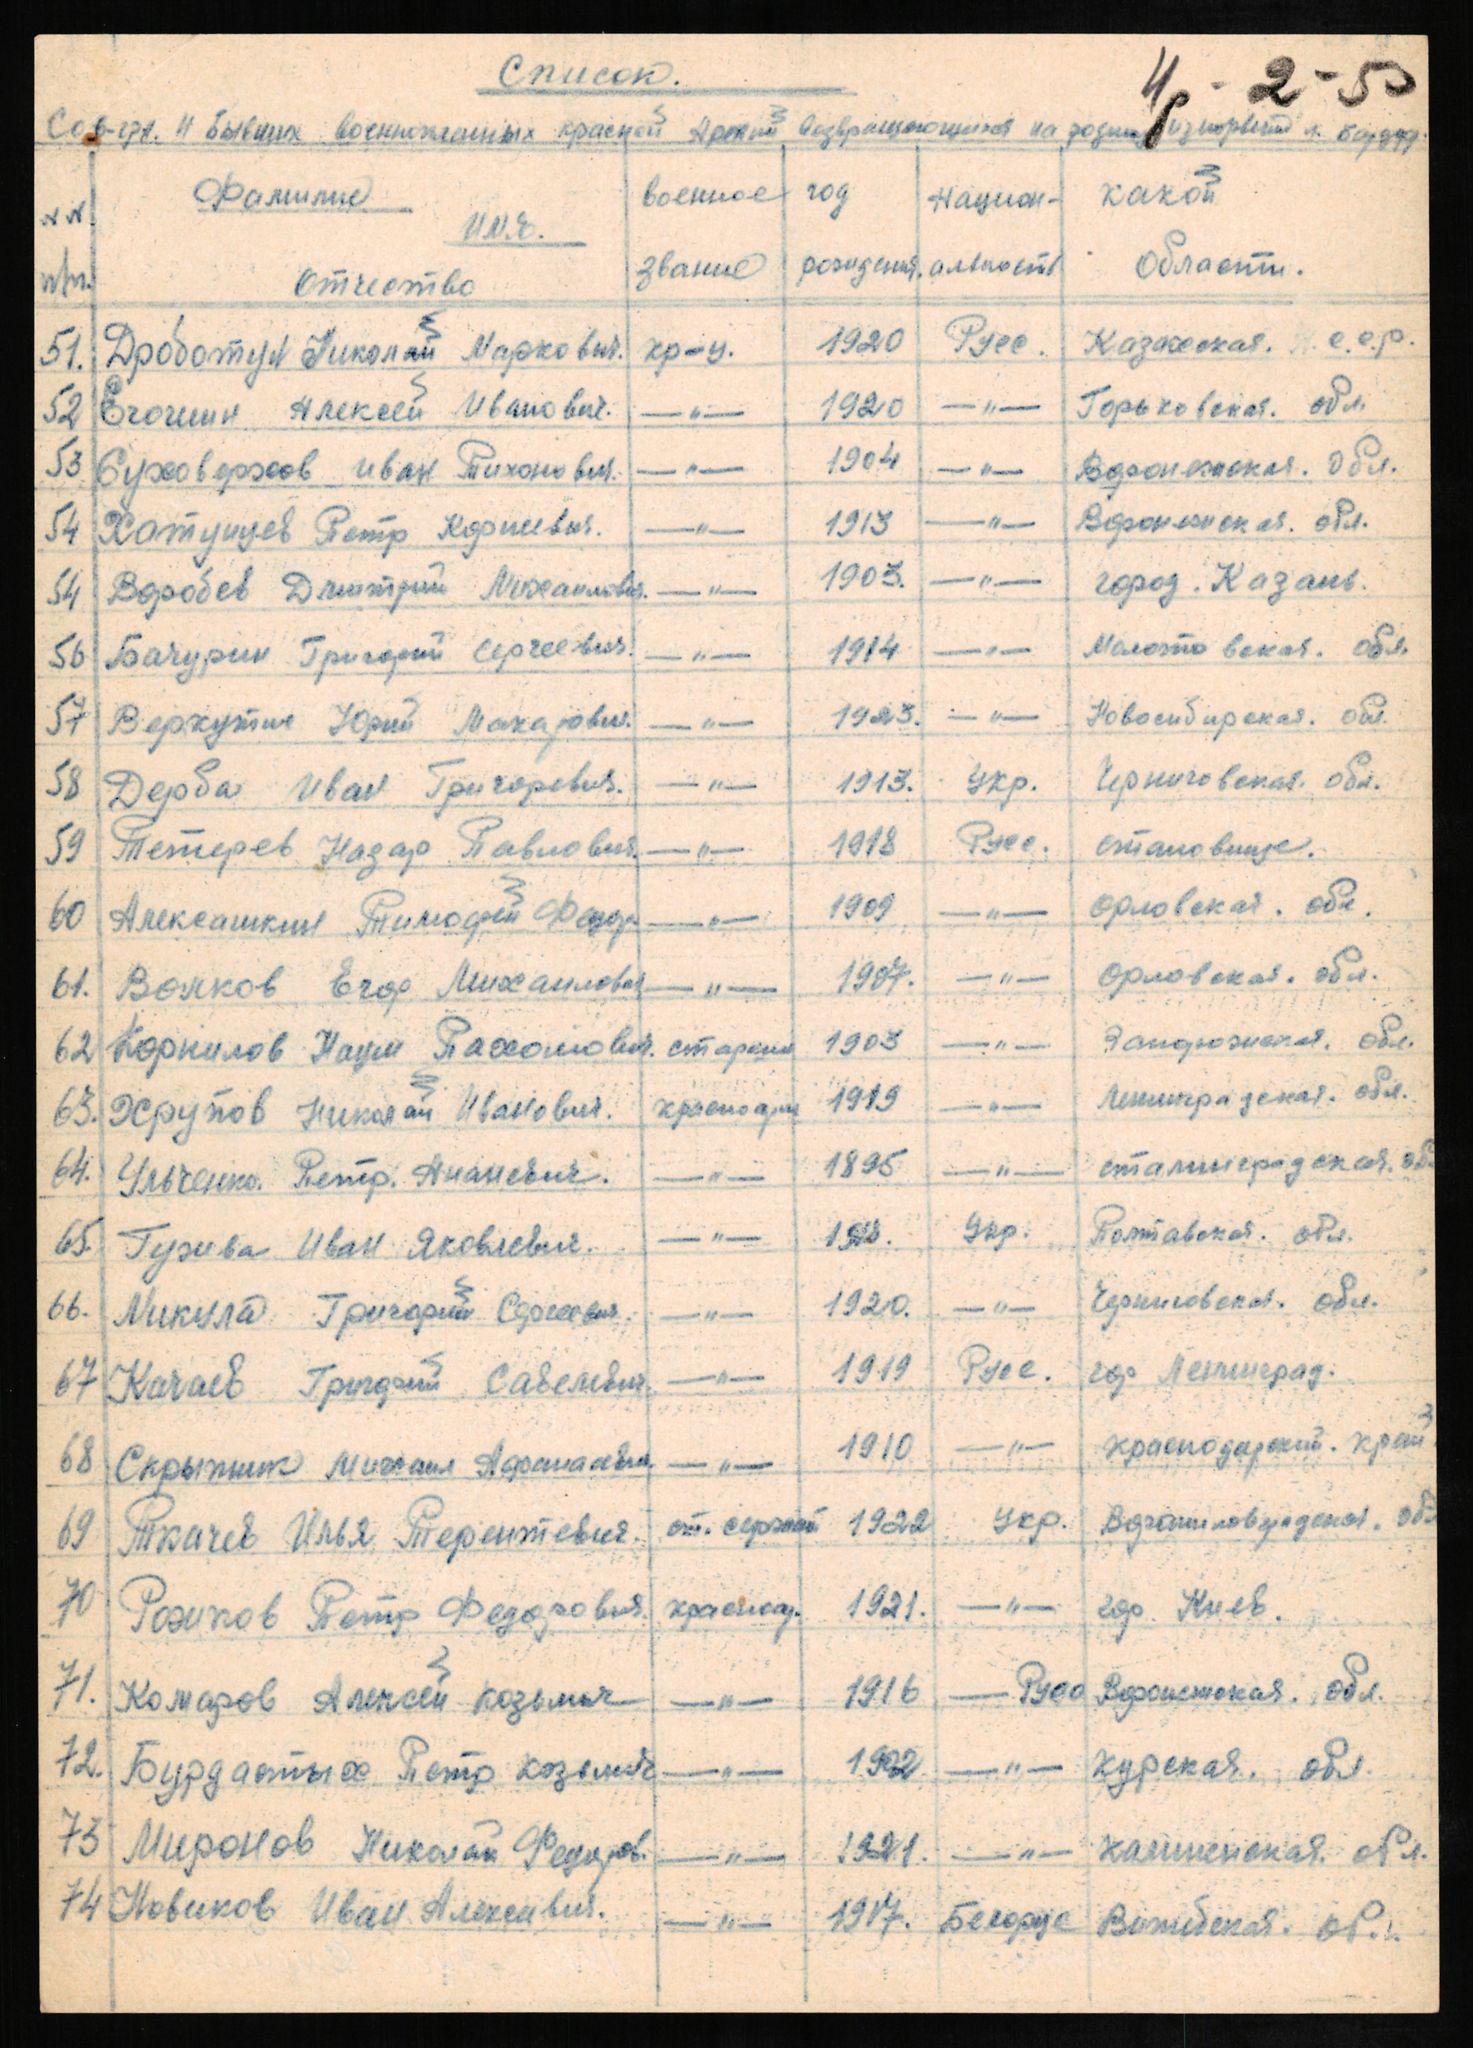 Список.
Нр - 2 - 50
Сов-гр. и бывших военнопленных красной Армий возвращающихся на родину из норвегий л. Бардуфо.
№ №
п/п.
Фамилие
имя.
Отчество
военное
звание
год
рождения.
Национ-
альность
какой
Области.
51. Дроботун Николай Маркович. кр-ц. 1920 Русс. Казахская. с.с.р.
52 Егошин Алексей Иванович. —"— 1920 —"— Горьковская. обл.
53 Суховерхов Иван Тихонович. —"— 1904 —"— Воронежская. Обл.
54 Хатунцев Петр Корневич. —"— 1913 —"— Воронежская. обл.
54 Воробев Дмитрий Михаилович. —"— 1903. —"— город. Казань.
56 Бачурин Григорий Сергеевич. —"— 1914 —"— Молотовская. обл.
57 Веркутин Юрий Макарович. —"— 1923. —"— Новосибирская. обл.
58 Дерба Иван Григоревич. —"— 1913. Укр. Черниговская. обл.
59 Тетерев Назар Павлович. —"— 1918 Русс. становище.
60 Алексашкин Тимофей Федор —"— 1909 —"— Орловская. обл.
61. Волков Егор Михаилович —"— 1907. —"— Орловская. обл.
62 Корнилов Наум Пахомович. старшин 1903 —"— Запорожская. обл.
63. Хрупов Николай Иванович. красноарм 1919 —"— Ленинградская. обл.
64. Ульченко. Петр. Ананевич. —"— 1895 —"— сталинградская. об.
65. Гужва Иван Яковлевич. —"— Укр. Полтавская. обл.
66. Микула Григорий Сергеевич. —"— 1920. —"— Черниговская. обл.
67 Качаев Григорий Савелевич. —"— 1919 Русс. гор Ленинград.
68 Скрыпник Михаил Афанасевич. —"— 1910 —"— краснодарский. край.
69 Ткачев Илья Терентевич. ст. сержант 1922 Укр. Ворошиловградская. обл
70 Рожков Петр Федорович. красноар. 1921. —"— гор. Киев.
71. Комаров Алексей козьмич —"— 1916 — Русс Воронежская. обл.
72. Бурдастых Петр козьмич —"— 1922 —"— курская. обл.
73 Миронов Николай Федоров. —"— 1921. —"— калиненская. обл.
74 Новиков Иван Алексевич. —"— 1917. Белорус Витебская. об.